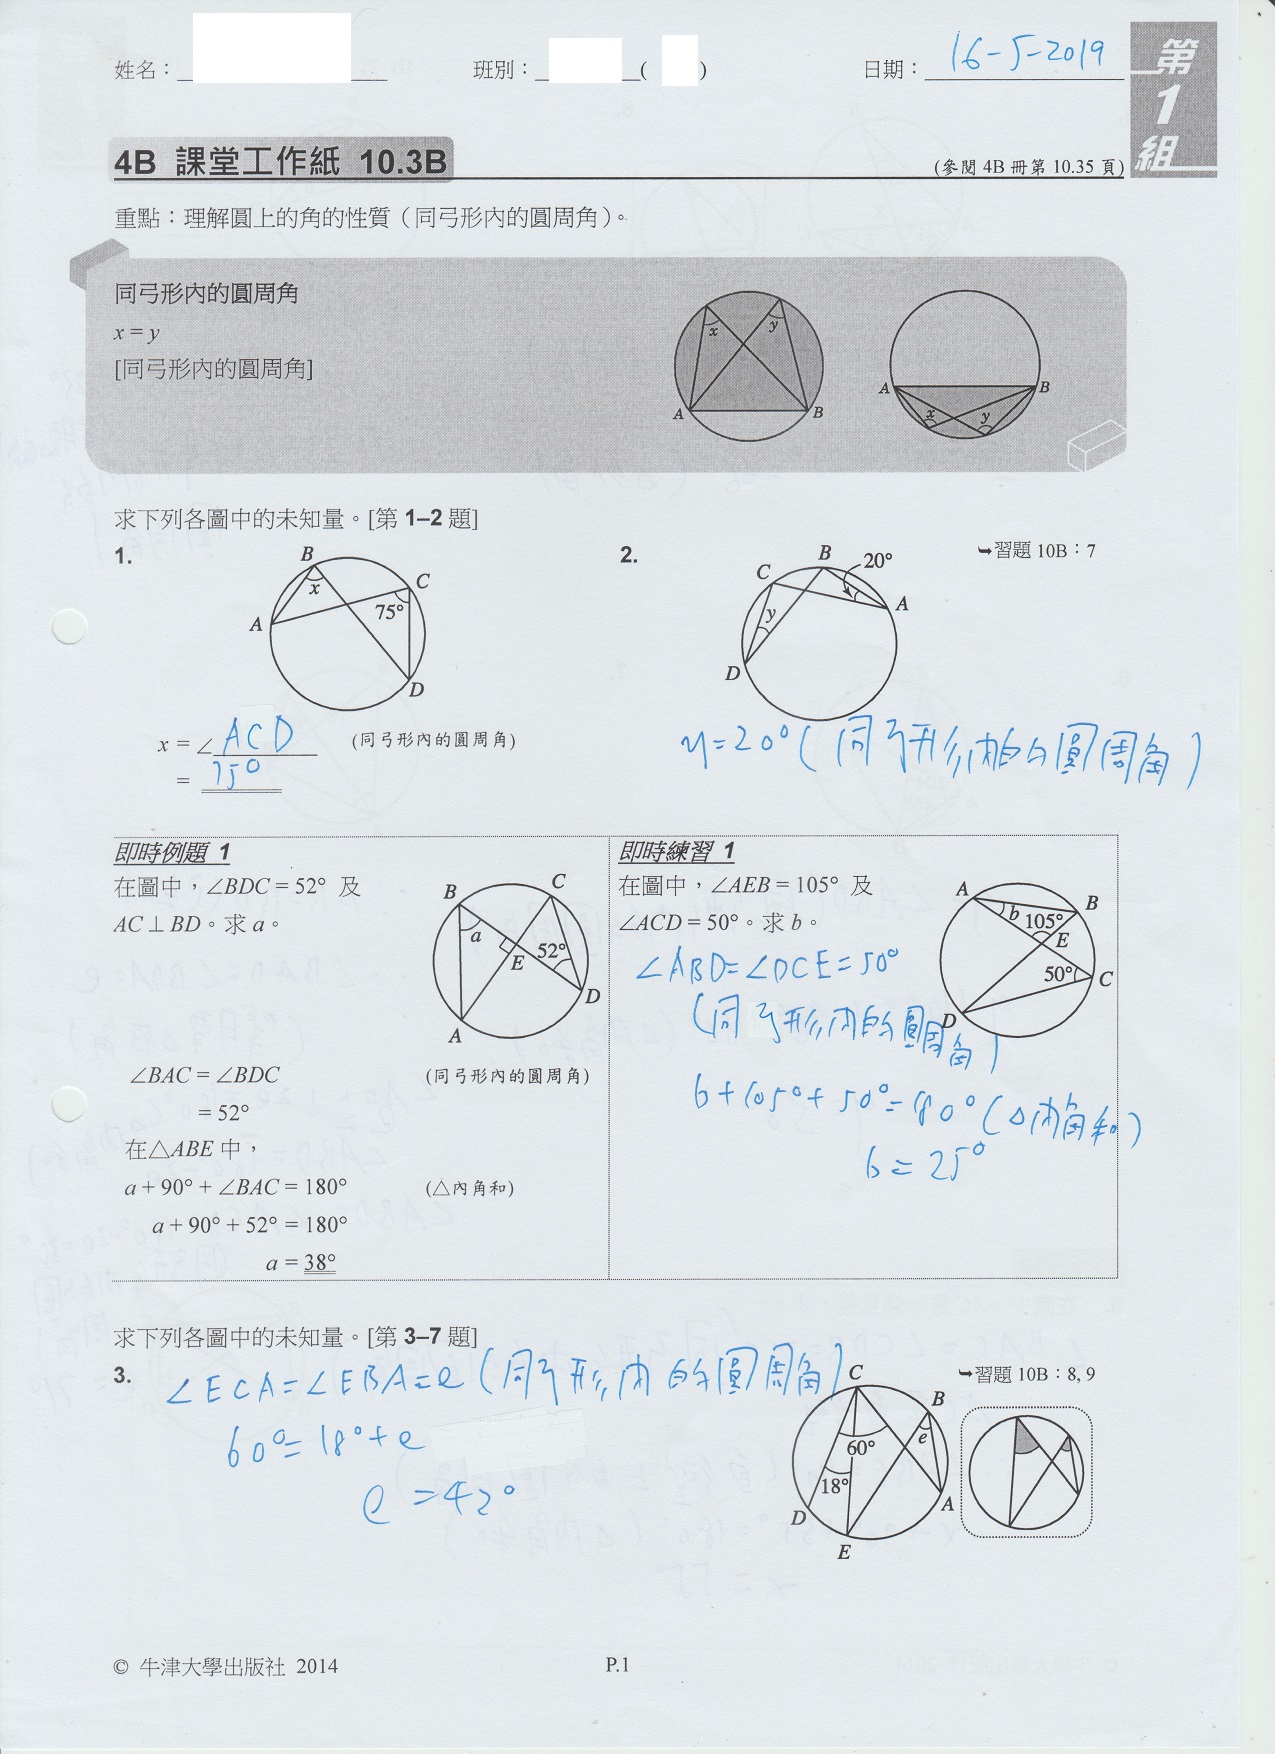 姓名：
班別： ( )
日期： 16-5-2019
第
1
組
4B 課堂工作紙 10.3B
(參閱 4B 冊第 10.35 頁)
重點：理解圓上的角的性質（同弓形內的圓周角）。
同弓形內的圓周角
x = y
[同弓形內的圓周角]
x
y
A
B
A
B
x
y
求下列各圖中的未知量。[第 1–2 題]
1.
B
x
C
75°
A
D
x = ∠ ACD (同弓形內的圓周角)
= 75°
2.
➥習題 10B：7
B
20°
C
A
y
D
y=20° (同弓形內的圓周角)
即時例題 1
在圖中，∠BDC = 52° 及
AC ⊥ BD。求 a。
B
C
a
52°
E
D
A
∠BAC = ∠BDC (同弓形內的圓周角)
= 52°
在△ABE 中，
a + 90° + ∠BAC = 180° (△內角和)
a + 90° + 52° = 180°
a = 38°
即時練習 1
在圖中，∠AEB = 105° 及
∠ACD = 50°。求 b。
A
B
b
105°
E
50°
C
D
∠ABD=∠DCE=50°
(同弓形內的圓周角)
b+105°+50°=180° (△內角和)
b=25°
求下列各圖中的未知量。[第 3–7 題]
3.
∠ECA=∠EBA=e (同弓形內的圓周角)
60°=18°+e
e=42°
➥習題 10B：8, 9
C
B
e
60°
18°
A
D
E
© 牛津大學出版社 2014
P.1